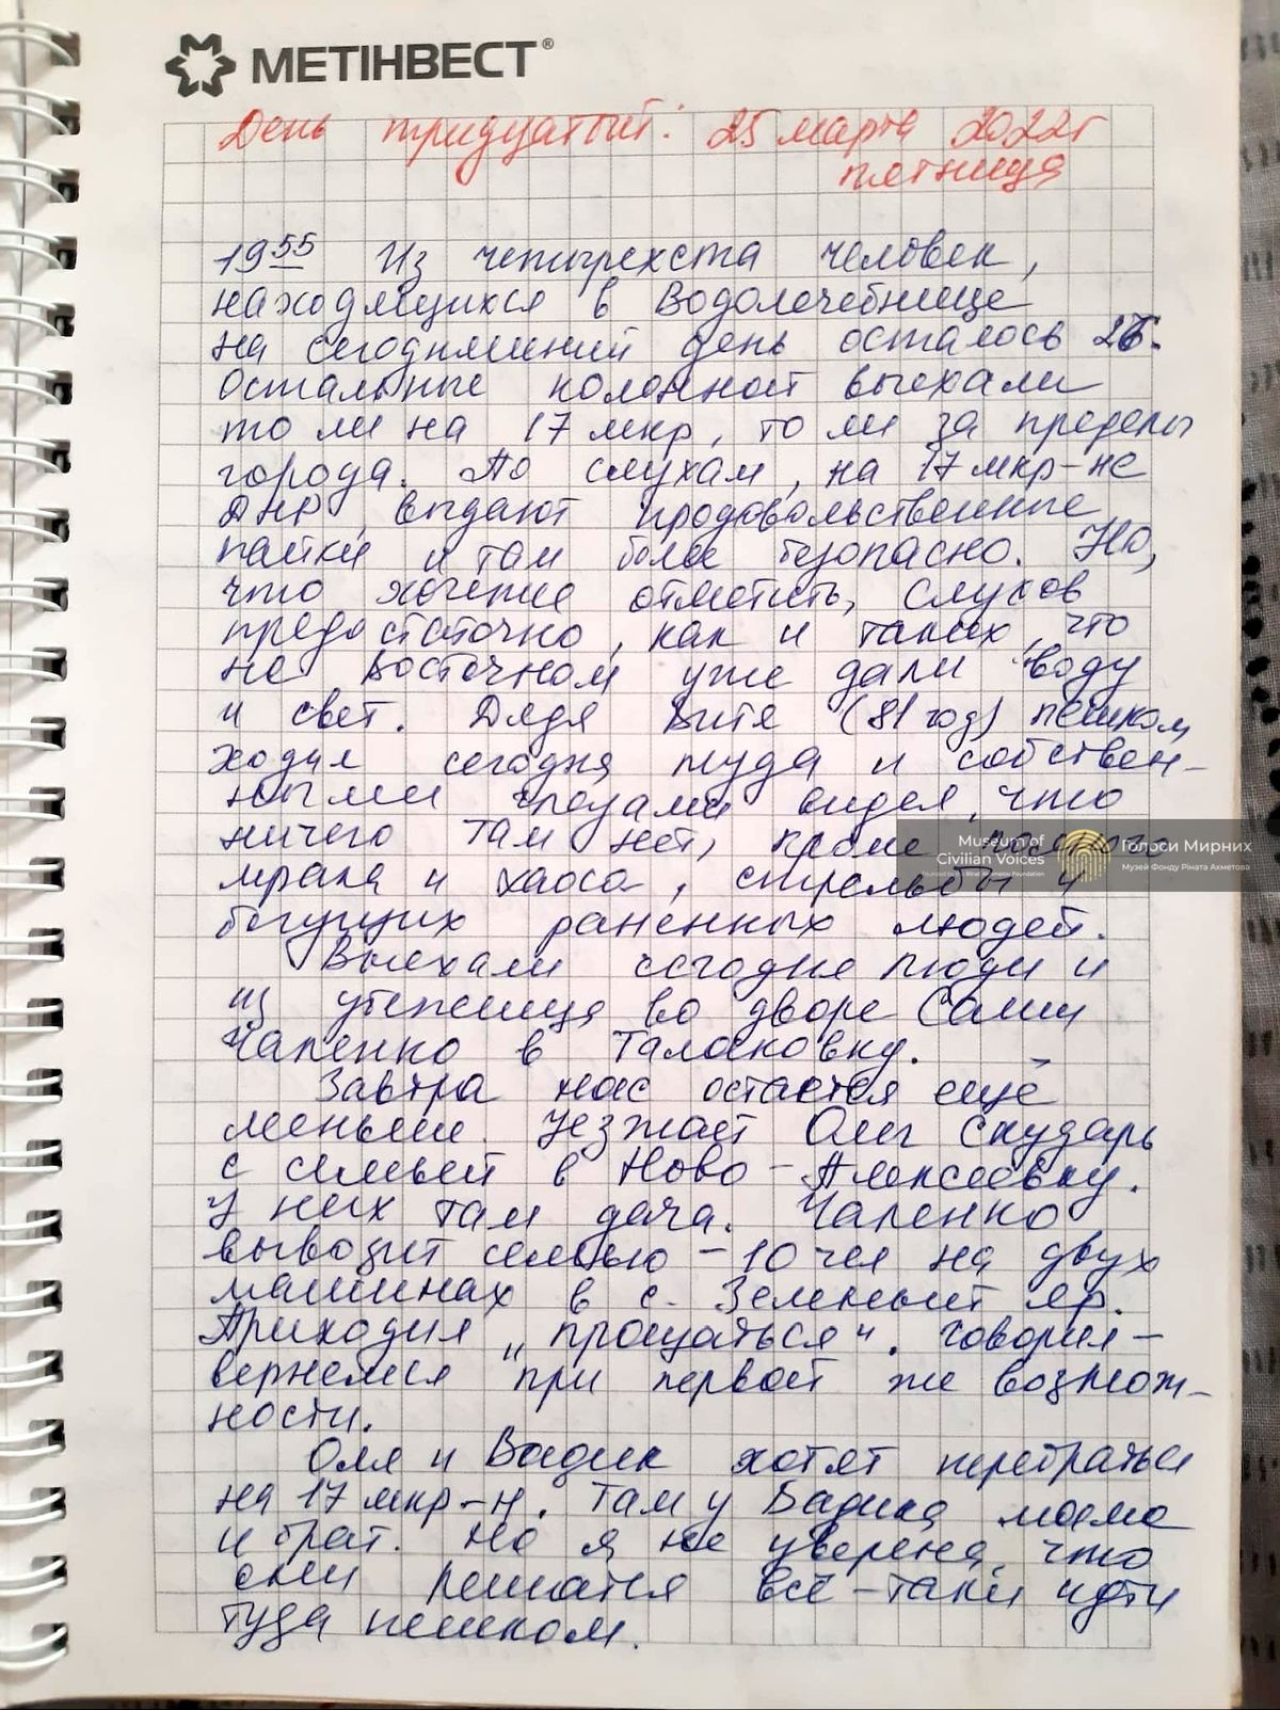 МЕТІНВЕСТ®
День тридцатый: 25 марта 2022г
пятница
19 55 Из четырехста человек,
находящихся в Водолечебнице
на сегодняшний день осталось 26.
Остальные колонной выехали
то ли на 17 мкр, то ли за пределы
города. По слухам, на 17 мкр-не
ДНР выдают продовольственные
пайки и там более безопасно. Но,
что хочется отметить, слухов
предостаточно, как и таких, что
на Восточном уже дали воду
и свет. Дядя Витя (81 год) пешком
ходил сегодня туда и собствен-
ными глазами видел, что
ничего там нет, кроме полного
мрака и хаоса, стрельбы и
бегущих раненных людей.
Выехали сегодня люди и
из убежища во дворе Саши
Чапенко в Талаковку.
Завтра нас остается ещё
меньше. Уезжает Олег Скударь
с семьей в Ново-Алексеевку.
У них там дача. Чапенко
вывозит семью - 10 чел на двух
машинах в с. Зеленый Яр.
Приходил „прощаться“. Говорил -
вернемся при первой же возмож-
ности.
Оля и Вадик хотят перебраться
на 17 мкр-н. Там у Вадика мама
и брат. Но я не уверена, что
они решатся всё-таки идти
туда пешком.
Museum of
Civilian Voices
Голоси Мирних
Музей Фонду Ріната Ахметова